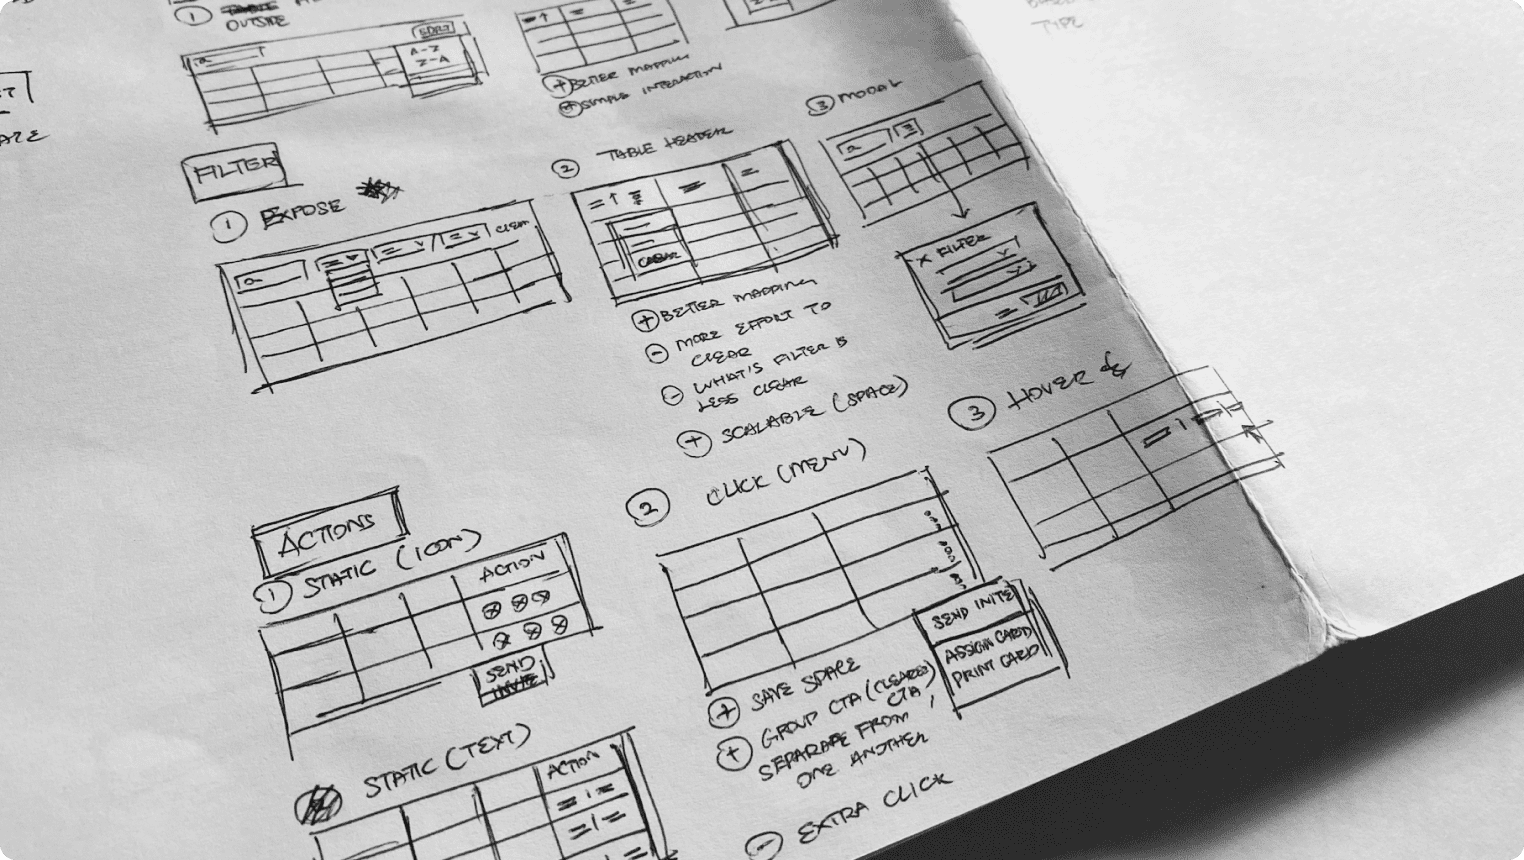 OUTSIDE
SORT
A-Z
Z-A
+ BETTER MAPPING
+ SIMPLE INTERACTION
TYPE
FILTER
1 EXPOSE
CLEAR
2 TABLE HEADER
CLEAR
+ BETTER MAPPING
- MORE EFFORT TO
CLEAR
- WHAT'S FILTER IS
LESS CLEAR
+ SCALABLE (SPACE)
3 MODAL
X FILTER
ACTIONS
1 STATIC (ICON)
ACTION
SEND
INVITE
STATIC (TEXT)
ACTION
2 CLICK (MENU)
SEND INITE
ASSIGN CARD
PRINT CARD
+ SAVE SPACE
+ GROUP CTA (CLEAREST
CTA,
SEPARATE FROM
ONE ANOTHER
- EXTRA CLICK
3 HOVER &